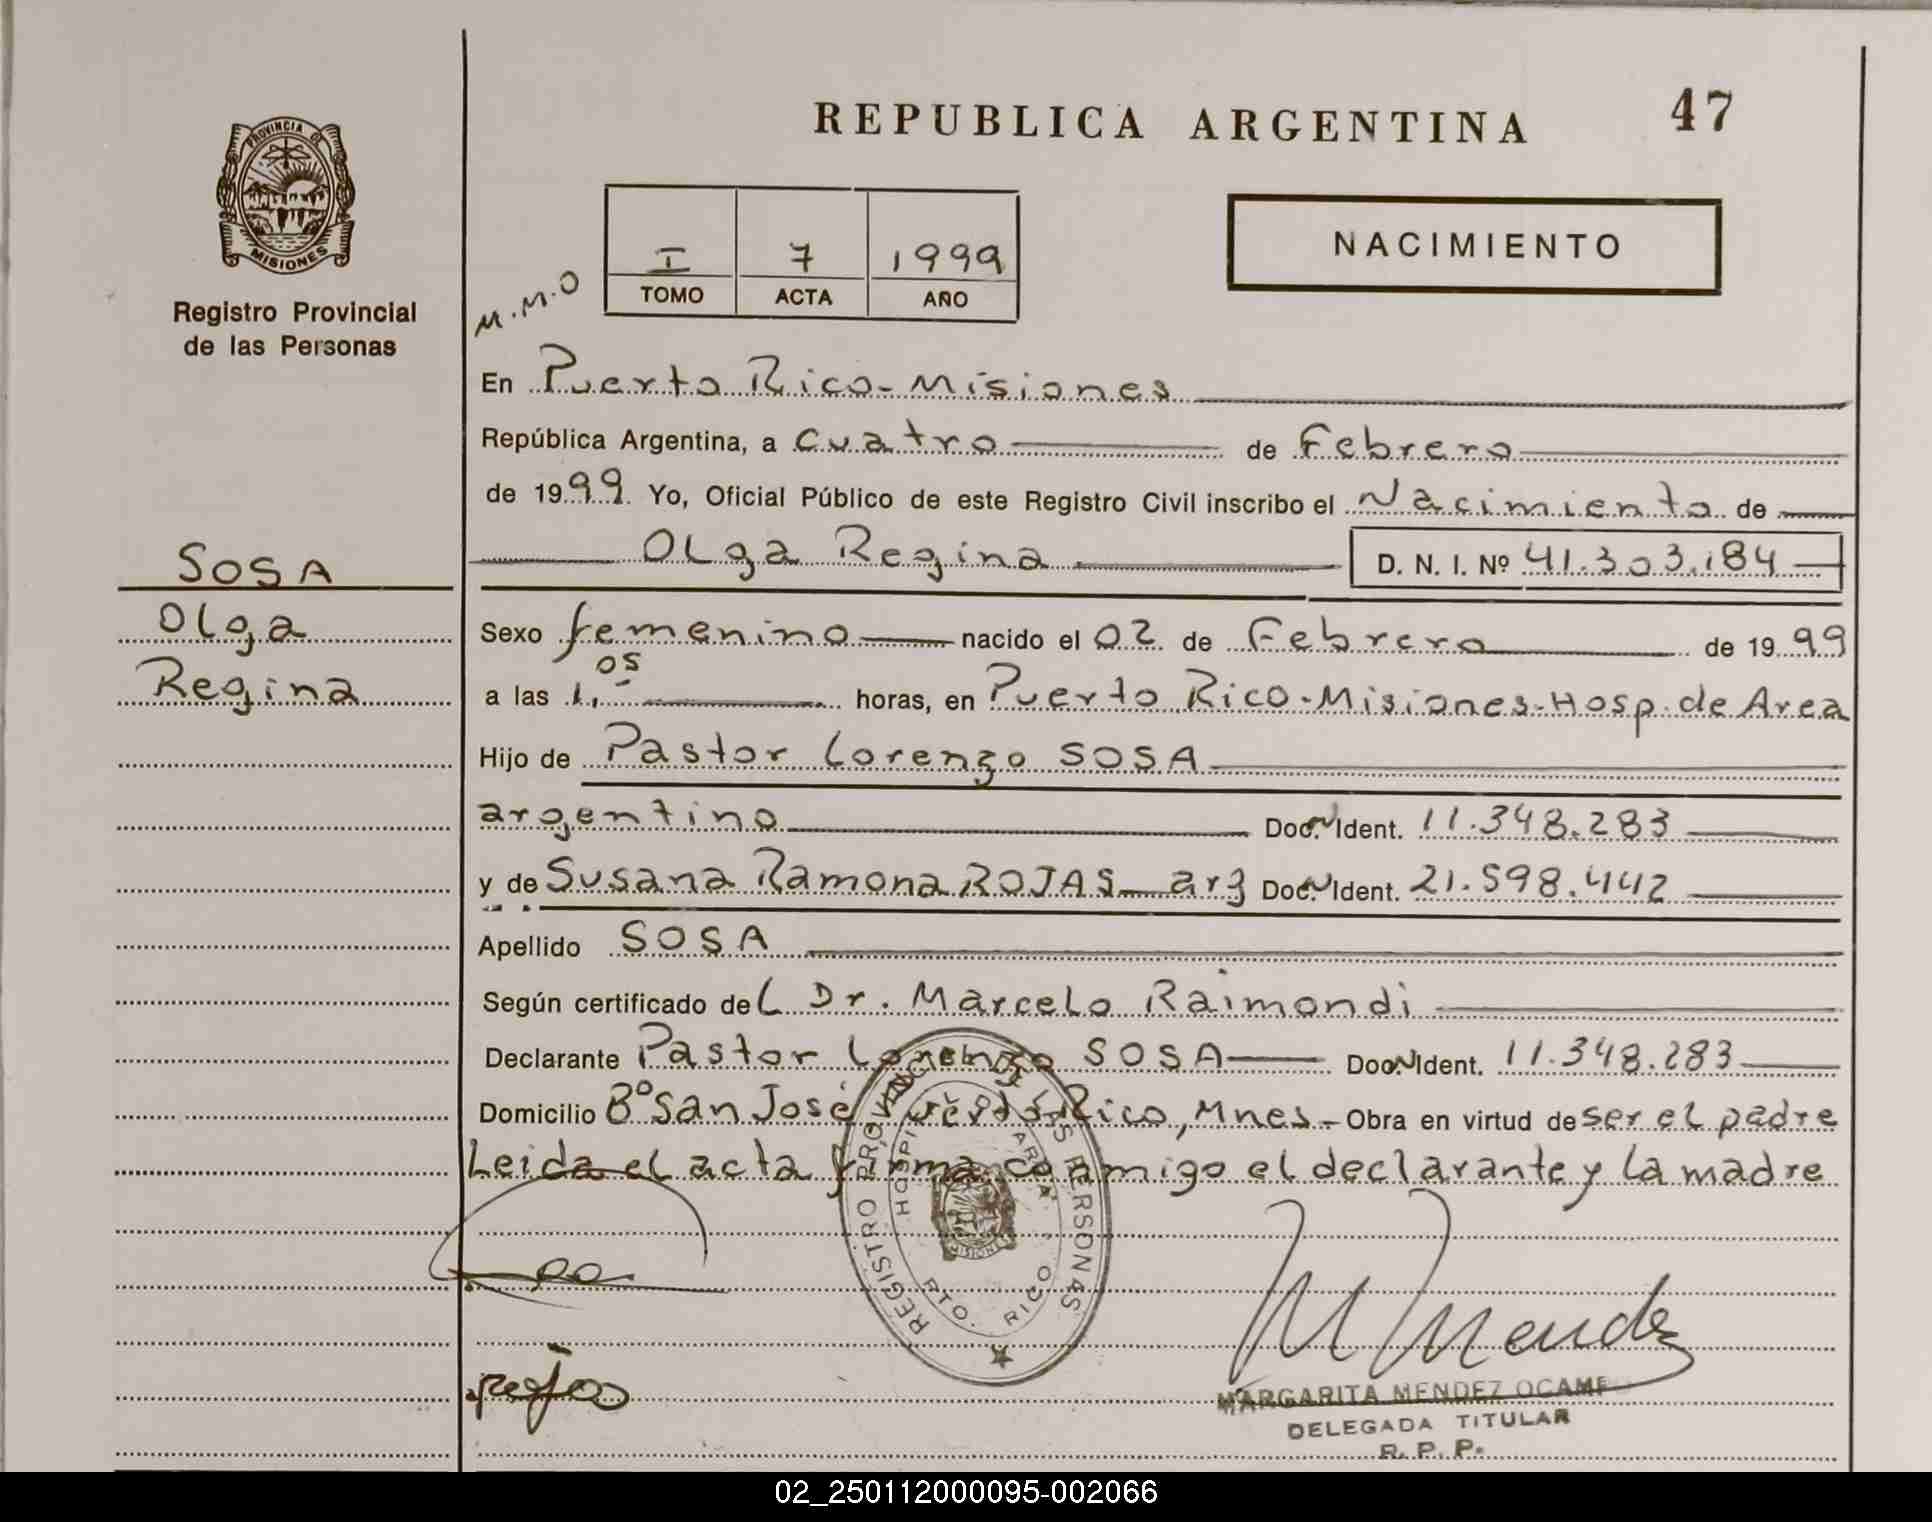 REPUBLICA ARGENTINA 47
PROVINCIA DE
MISIONES
Registro Provincial
de las Personas
I 7 1999
TOMO ACTA AÑO
NACIMIENTO
M.M.O
En Puerto Rico-Misiones
República Argentina, a cuatro de Febrero
de 1999 Yo, Oficial Público de este Registro Civil inscribo el Nacimiento de
Olga Regina D. N. I. Nº 41.303.184
SOSA
Olga
Regina
Sexo femenino nacido el 02 de Febrero de 1999
a las 1,05 horas, en Puerto Rico-Misiones-Hosp. de Area
Hijo de Pastor Lorenzo SOSA
argentino Doc. Ident. 11.348.283
y de Susana Ramona ROJAS arg Doc. Ident. 21.598.442
Apellido SOSA
Según certificado del Dr. Marcelo Raimondi
Declarante Pastor Lorenzo SOSA Doc. Ident. 11.348.283
Domicilio Bº San José Puerto Rico, Mnes.- Obra en virtud de ser el padre
Leida el acta firma conmigo el declarante y la madre
REGISTRO PROVINCIAL DE LAS PERSONAS
HOSPITAL DE AREA
PTO. RICO
MISIONES
M Mendez
Rojas
MARGARITA MENDEZ OCAMPO
DELEGADA TITULAR
R. P. P.
02_250112000095-002066